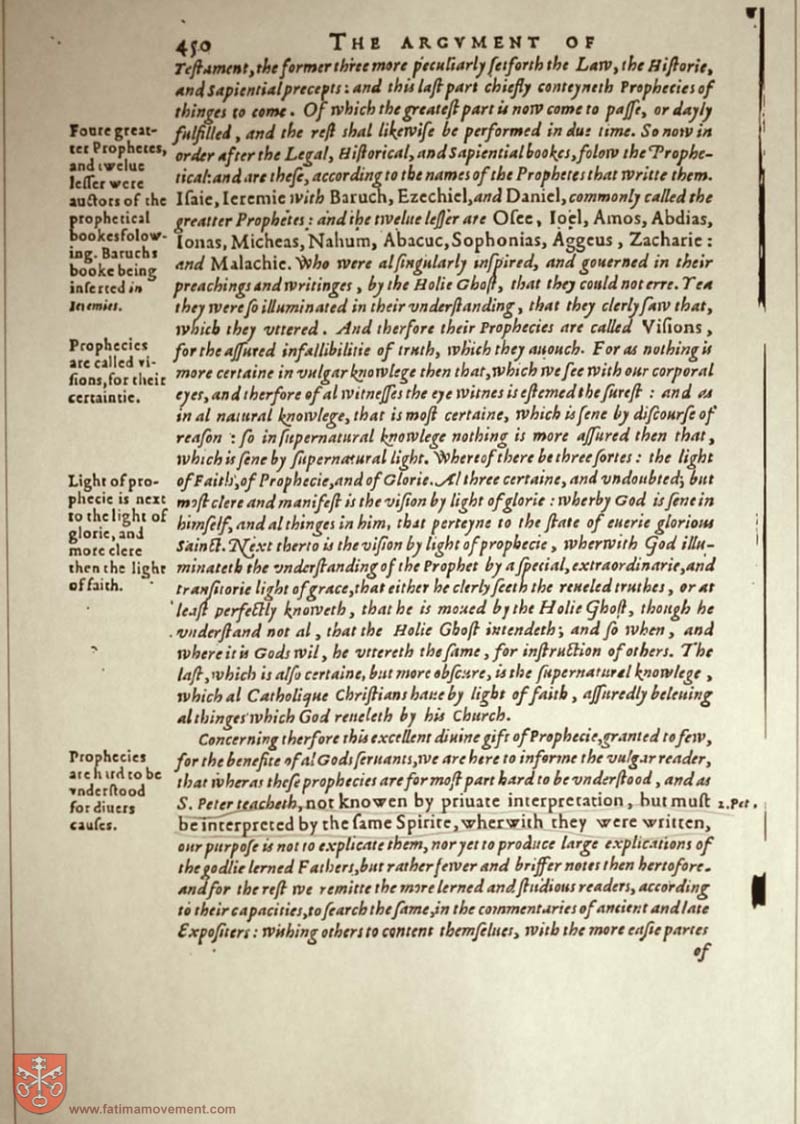 450 THE ARGVMENT OF
Teſtament, the former three more peculiarly ſetforth the Law, the Hiſtorie,
and Sapiential precepts: and this laſt part chiefly conteyneth Prophecies of
thinges to come. Of which the greateſt part is now come to paſſe, or dayly
fulfilled, and the reſt shal likewiſe be performed in due time. So now in
order after the Legal, Hiſtorical, and Sapiential bookes, folow the Prophe-
tical: and are theſe, according to the names of the Prophetes that writte them.
Iſaie, Ieremie with Baruch, Ezechiel, and Daniel, commonly called the
greatter Prophetes: and the twelue leſſer are Oſee, Ioel, Amos, Abdias,
Ionas, Micheas, Nahum, Abacuc, Sophonias, Aggeus, Zacharie:
and Malachie. Who were al ſingularly inſpired, and gouerned in their
preachings and writinges, by the Holie Ghoſt, that they could not erre. Yea
they were ſo illuminated in their vnderſtanding, that they clerly ſaw that,
which they vttered. And therfore their Prophecies are called Viſions,
for the aſſured infallibilitie of truth, which they auouch. For as nothing is
more certaine in vulgar knowlege then that, which we ſee with our corporal
eyes, and therfore of al witneſſes the eye witnes is eſtemed the ſureſt: and as
in al natural knowlege, that is moſt certaine, which is ſene by diſcourſe of
reaſon: ſo in ſupernatural knowlege nothing is more aſſured then that,
which is ſene by ſupernatural light. Whereof there be three ſortes: the light
of Faith, of Prophecie, and of Glorie. Al three certaine, and vndoubted; but
moſt clere and manifeſt is the viſion by light of glorie: wherby God is ſene in
himſelf, and al thinges in him, that perteyne to the ſtate of euerie glorious
Sainct. Next therto is the viſion by light of prophecie, wherwith God illu-
minateth the vnderſtanding of the Prophet by a ſpecial, extraordinarie, and
tranſitorie light of grace, that either he clerly ſeeth the reueled truthes, or at
leaſt perfectly knoweth, that he is moued by the Holie Ghoſt, though he
vnderſtand not al, that the Holie Ghoſt intendeth; and ſo when, and
where it is Gods wil, he vttereth the ſame, for inſtruction of others. The
laſt, which is alſo certaine, but more obſcure, is the ſupernatural knowlege,
which al Catholique Chriſtians haue by light of faith, aſſuredly beleuing
al thinges which God reueleth by his Church.
Concerning therfore this excellent diuine gift of Prophecie, granted to few,
for the benefite of al Gods ſeruants, we are here to informe the vulgar reader,
that wheras theſe prophecies are for moſt part hard to be vnderſtood, and as
S. Peter teacheth, not knowen by priuate interpretation, but muſt
be interpreted by the ſame Spirite, wherwith they were written,
our purpoſe is not to explicate them, nor yet to produce large explications of
the godlie lerned Fathers, but rather fewer and briffer notes then hertofore.
and for the reſt we remitte the more lerned and ſtudious readers, according
to their capacities, to ſearch the ſame, in the commentaries of ancient and late
Expoſiters: wishing others to content themſelues, with the more eaſie partes
of
Foure great-
ter Prophetes,
and twelue
leſſer were
auctors of the
prophetical
bookes folow-
ing. Baruchs
booke being
inſerted in
Ieremies.
Prophecies
are called vi-
ſions, for their
certaintie.
Light of pro-
phecie is next
to the light of
glorie, and
more clere
then the light
of faith.
Prophecies
are hard to be
vnderſtood
for diuers
cauſes.
2. Pet.
www.fatimamovement.com